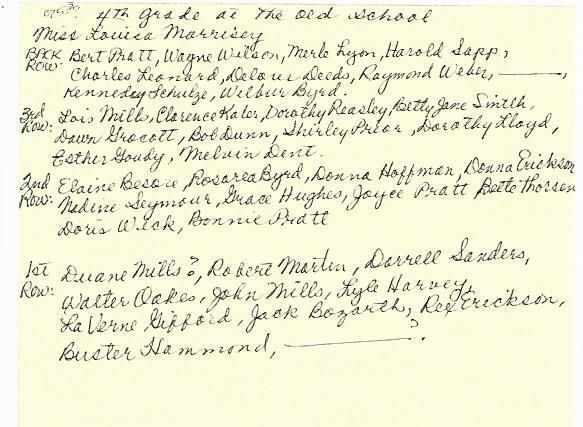 4th grade at the old school
Miss Louisa Morrisey
BACK ROW: Bert Pratt, Wayne Wilson, Merle Lyon, Harold Sapp,
Charles Leonard, Delores Deeds, Raymond Weber, ———,
Kennedy Schulze, Wilbur Byrd.
3rd ROW: Lois Mills, Clarence Kater, Dorothy Reasley, Betty Jane Smith,
Dawn Grocott, Bob Dunn, Shirley Prior, Dorothy Lloyd,
Esther Goudy, Melvin Dent.
2nd ROW: Elaine Besore, Rosarea Byrd, Donna Hoffman, Donna Erickson
Nadine Seymour, Grace Hughes, Joyce Pratt Bette Thorsen
Doris Wick, Bonnie Pratt
1st ROW: Duane Mills?, Robert Martin, Darrell Sanders,
Walter Oakes, John Mills, Lyle Harvey,
LaVerne Gifford, Jack Bozarth, Rex Erickson,
Buster Hammond, ———?.